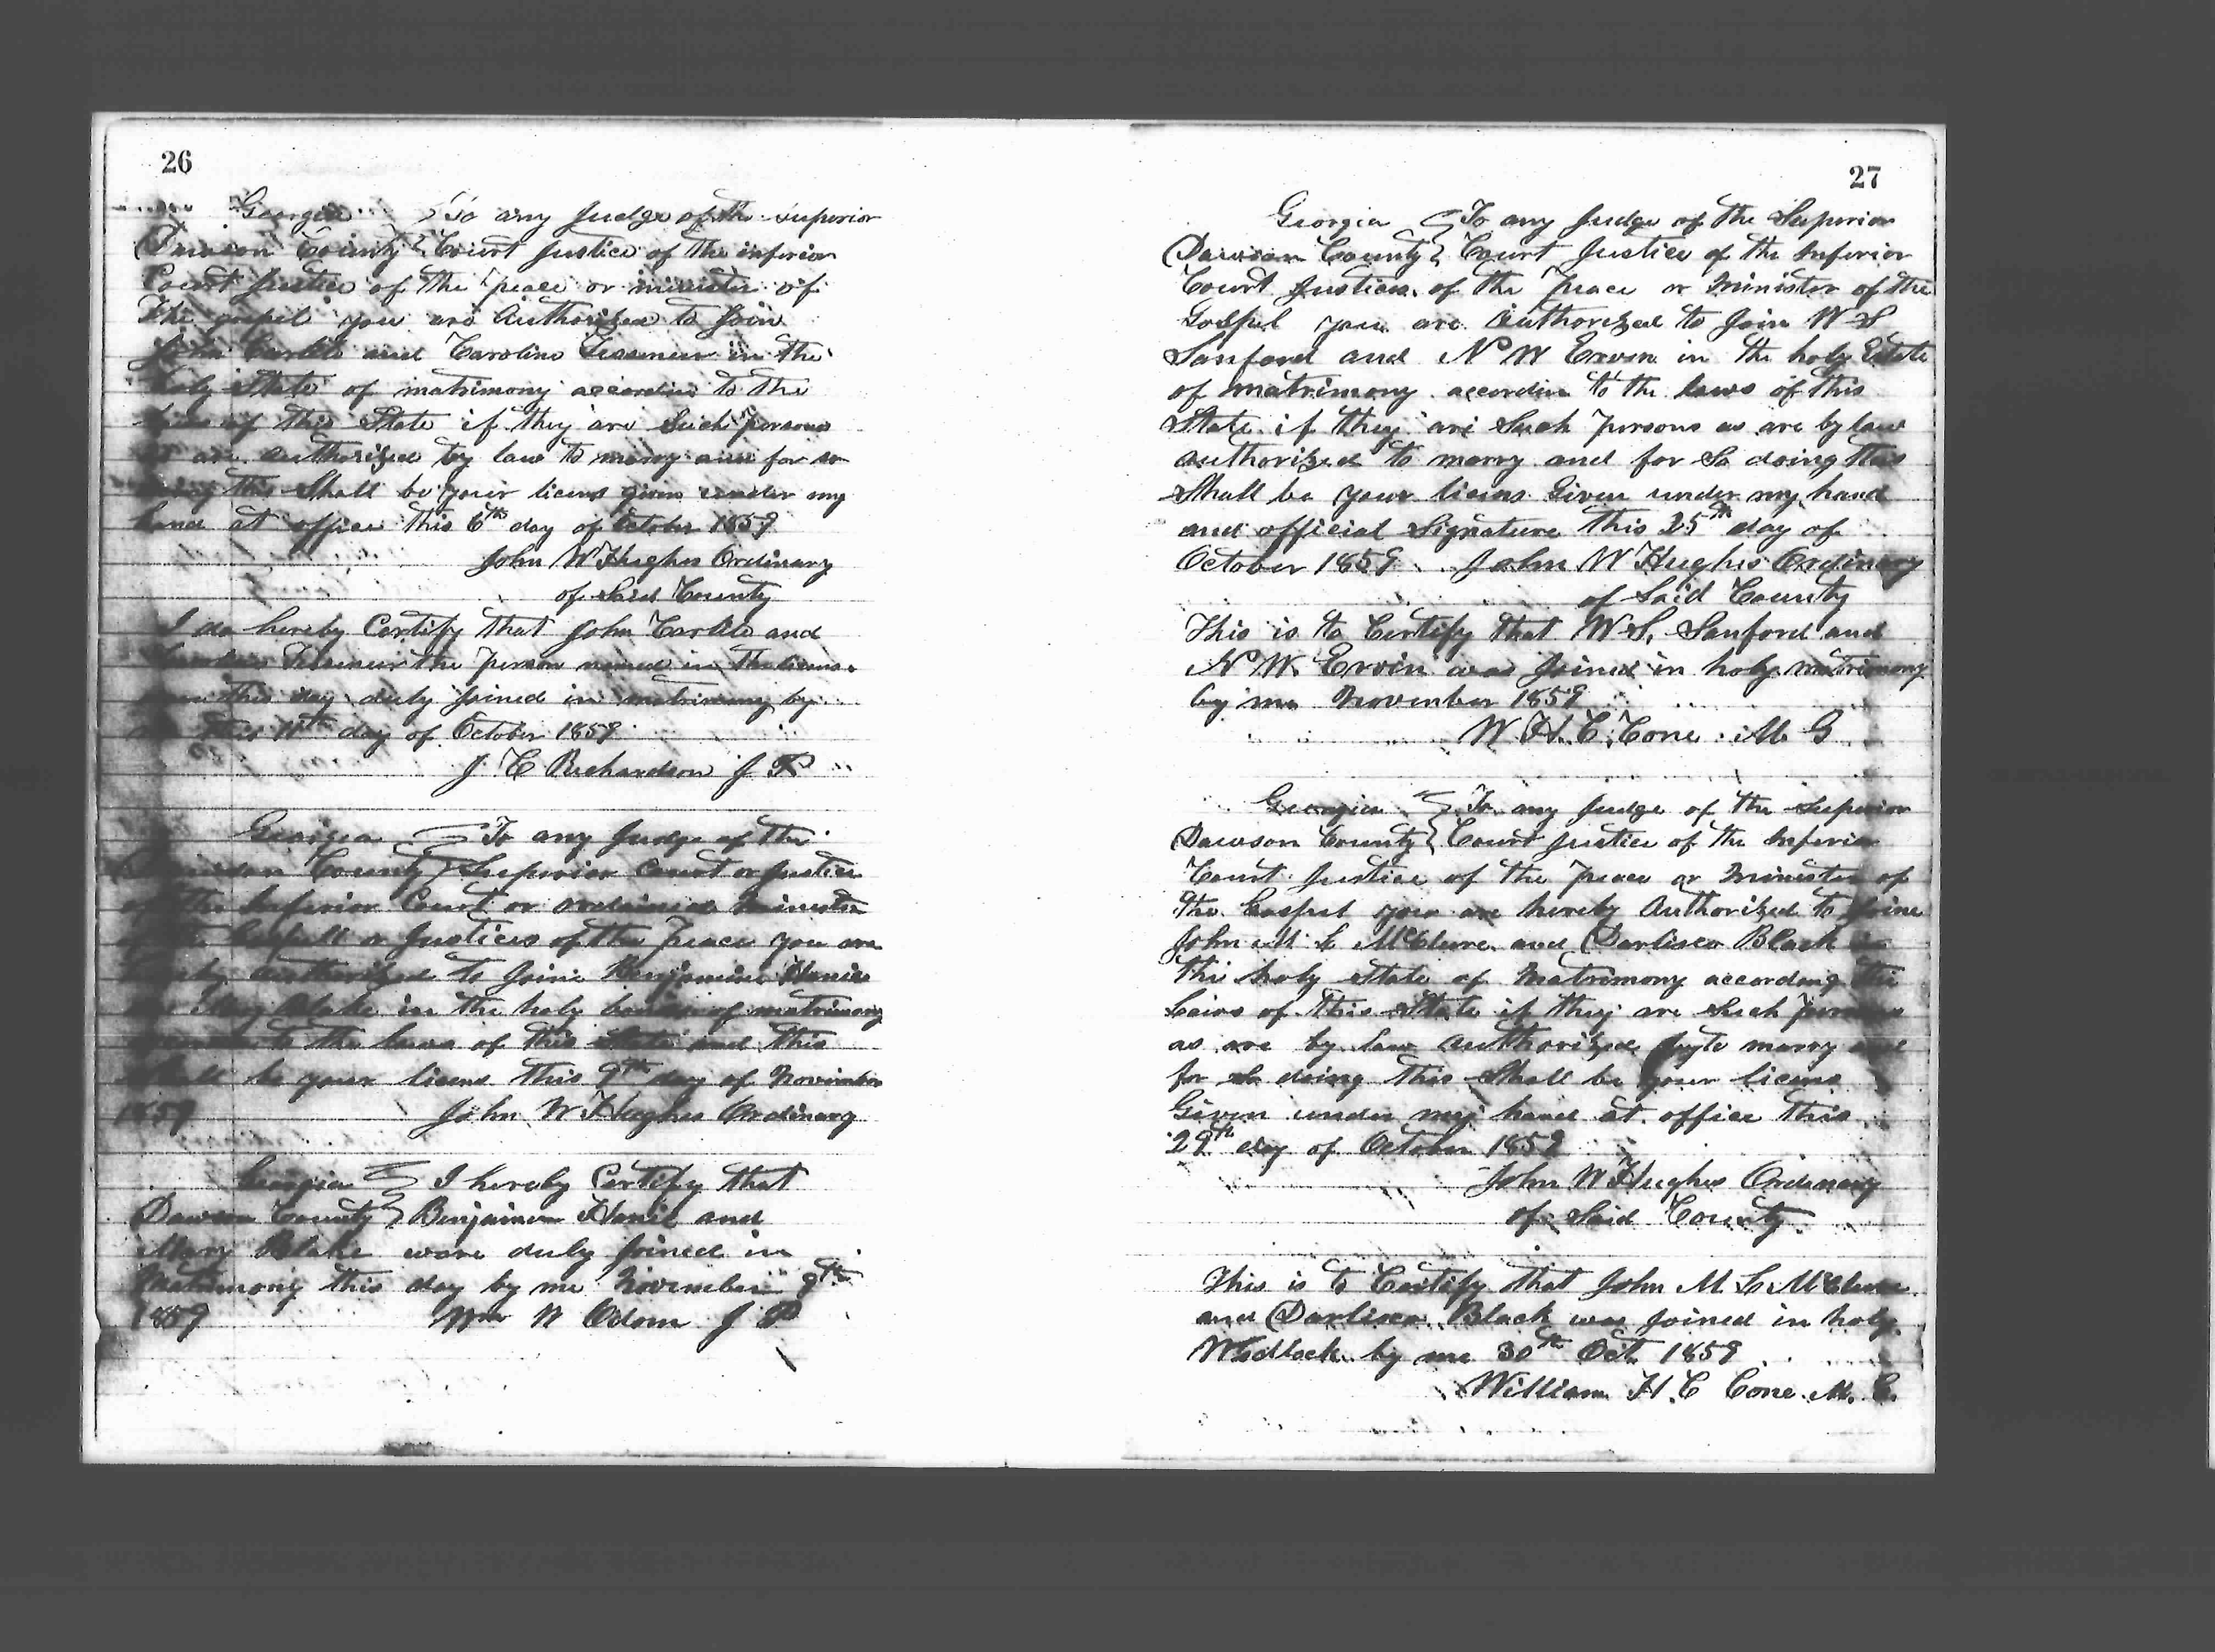 26
Georgia To any Judge of the superior
Dawson County Court Justice of the inferior
Court Justice of the peace or minister of
The gospel you are Authorized to Join
John Carlile and Caroline in the
holy State of matrimony accordin to the
laws of this State if they are Such persons
as are authorized by law to marry and for so
doing this Shall be your licens given under my
hand at office this 6th day of October 1859
John W Hughes Ordinary
of Said County
I do hereby Certify that John Carlile and
the person named in The licens
this day duly joined in matrimony by
me this 11th day of October 1859
J C Richardson J P
Georgia To any Judge of the
Dawson County Superior Court or Justice
of the Inferior Court or ordained minister
of the Gospell or Justices of the Peace you are
hereby authorized to Join Benjamin
and Mary Blake in the holy of matrimony
to the laws of this State and this
Shall be your licens this 9th day of November
1859 John W Hughes Ordinary
Georgia I hereby Certify that
Dawson County Benjamin and
Mary Blake ware duly joined in
matrimony this day by me November 9th
1859 Wm W Odom J P
27
Georgia To any Judge of the Superior
Dawson County Court Justice of the Inferior
Court Justices of the Peace or Minister of the
Gospel you are Authorized to Join W S
Sanford and N W Ervin in the holy Estate
of matrimony accordin to the laws of this
State if they are Such persons as are by law
authorized to marry and for So doing this
Shall be your licens Given under my hand
and official Signature this 25th day of
October 1859 John W Hughes Ordinary
of Said County
This is to Certify that W S. Sanford and
N W. Ervin was Joined in holy matrimony
by me November 1859
W. H. C. Cone M G
Georgia To any Judge of the Superior
Dawson County Court Justice of the Inferior
Court Justice of the Peace or Minister of
the Gospel you are hereby Authorized to Joine
John M L McClure and Darlisea Black in
the holy State of Matrimony according the
Laws of this State if they are Such persons
as are by law authorized to marry and
for So doing this Shall be your licens
Given under my hand at office this
29th day of October 1859
John W Hughes Ordinary
of Said County
This is to Certify that John M L McClure
and Darlisea Black was Joined in holy
Wedlock by me 30th Oct 1859
William H. C Cone M. G.